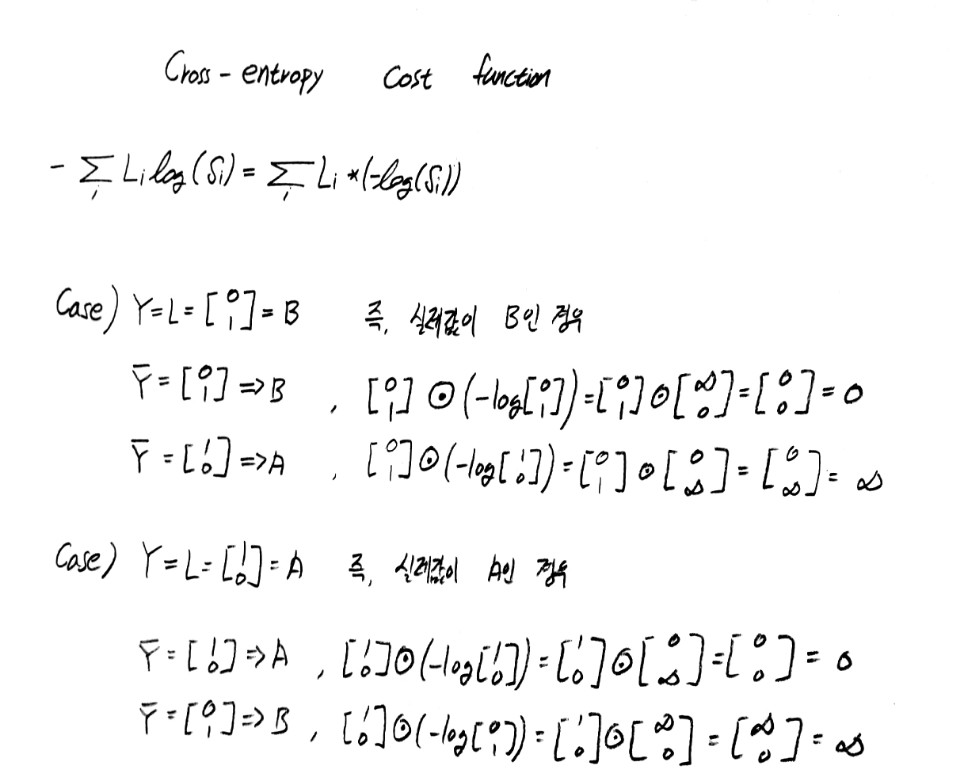 Cross-entropy cost function
- ∑_i L_i log(S_i) = ∑_i L_i * (-log(S_i))
Case) Y=L=[0 1]=B 즉, 실레값이 B인 경우
Ȳ=[0 1]=>B , [0 1]⊙(-log[0 1])=[0 1]⊙[∞ 0]=[0 0]=0
Ȳ=[1 0]=>A , [0 1]⊙(-log[1 0])=[0 1]⊙[0 ∞]=[0 ∞]=∞
Case) Y=L=[1 0]=A 즉, 실레값이 A인 경우
Ȳ=[1 0]=>A , [1 0]⊙(-log[1 0])=[1 0]⊙[0 ∞]=[0 0]=0
Ȳ=[0 1]=>B , [1 0]⊙(-log[0 1])=[1 0]⊙[∞ 0]=[∞ 0]=∞